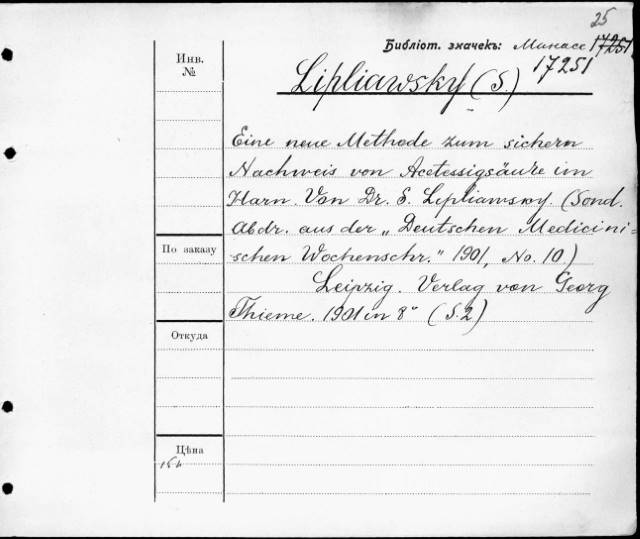 25
Библіот. значекъ: Манасе 17251
17251
Инв.
№
Lipliawsky (S.)
Eine neue Methode zum sichern
Nachweis von Acetessigsäure im
Harn. Von Dr. S. Lipliawsky. (Sond.
Abdr. aus der „Deutschen Medicini-
schen Wochenschr." 1901, No. 10.)
Leipzig. Verlag von Georg
Thieme. 1901 in 8° (S. 2)
По заказу
Откуда
Цѣна